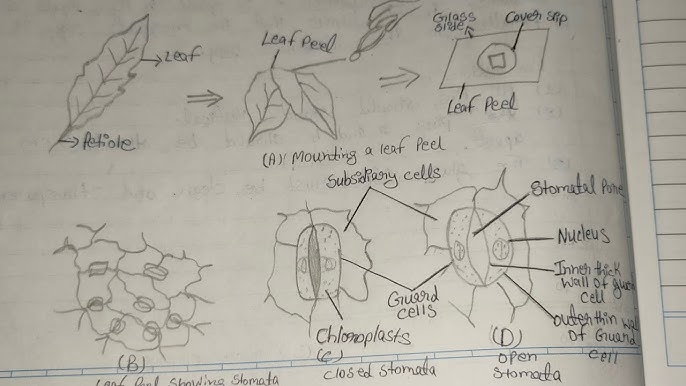 Leaf
Petiole
Leaf Peel
Glass
slide
Cover slip
Leaf Peel
(A) Mounting a leaf Peel
Subsidiary cells
Guard
cells
Chloroplasts
Stomatal Pore
Nucleus
Inner thick
wall of guard
cell
outer thin wall
of Guard
cell
(B)
Leaf Peel showing stomata
(C)
closed stomata
(D)
open
stomata